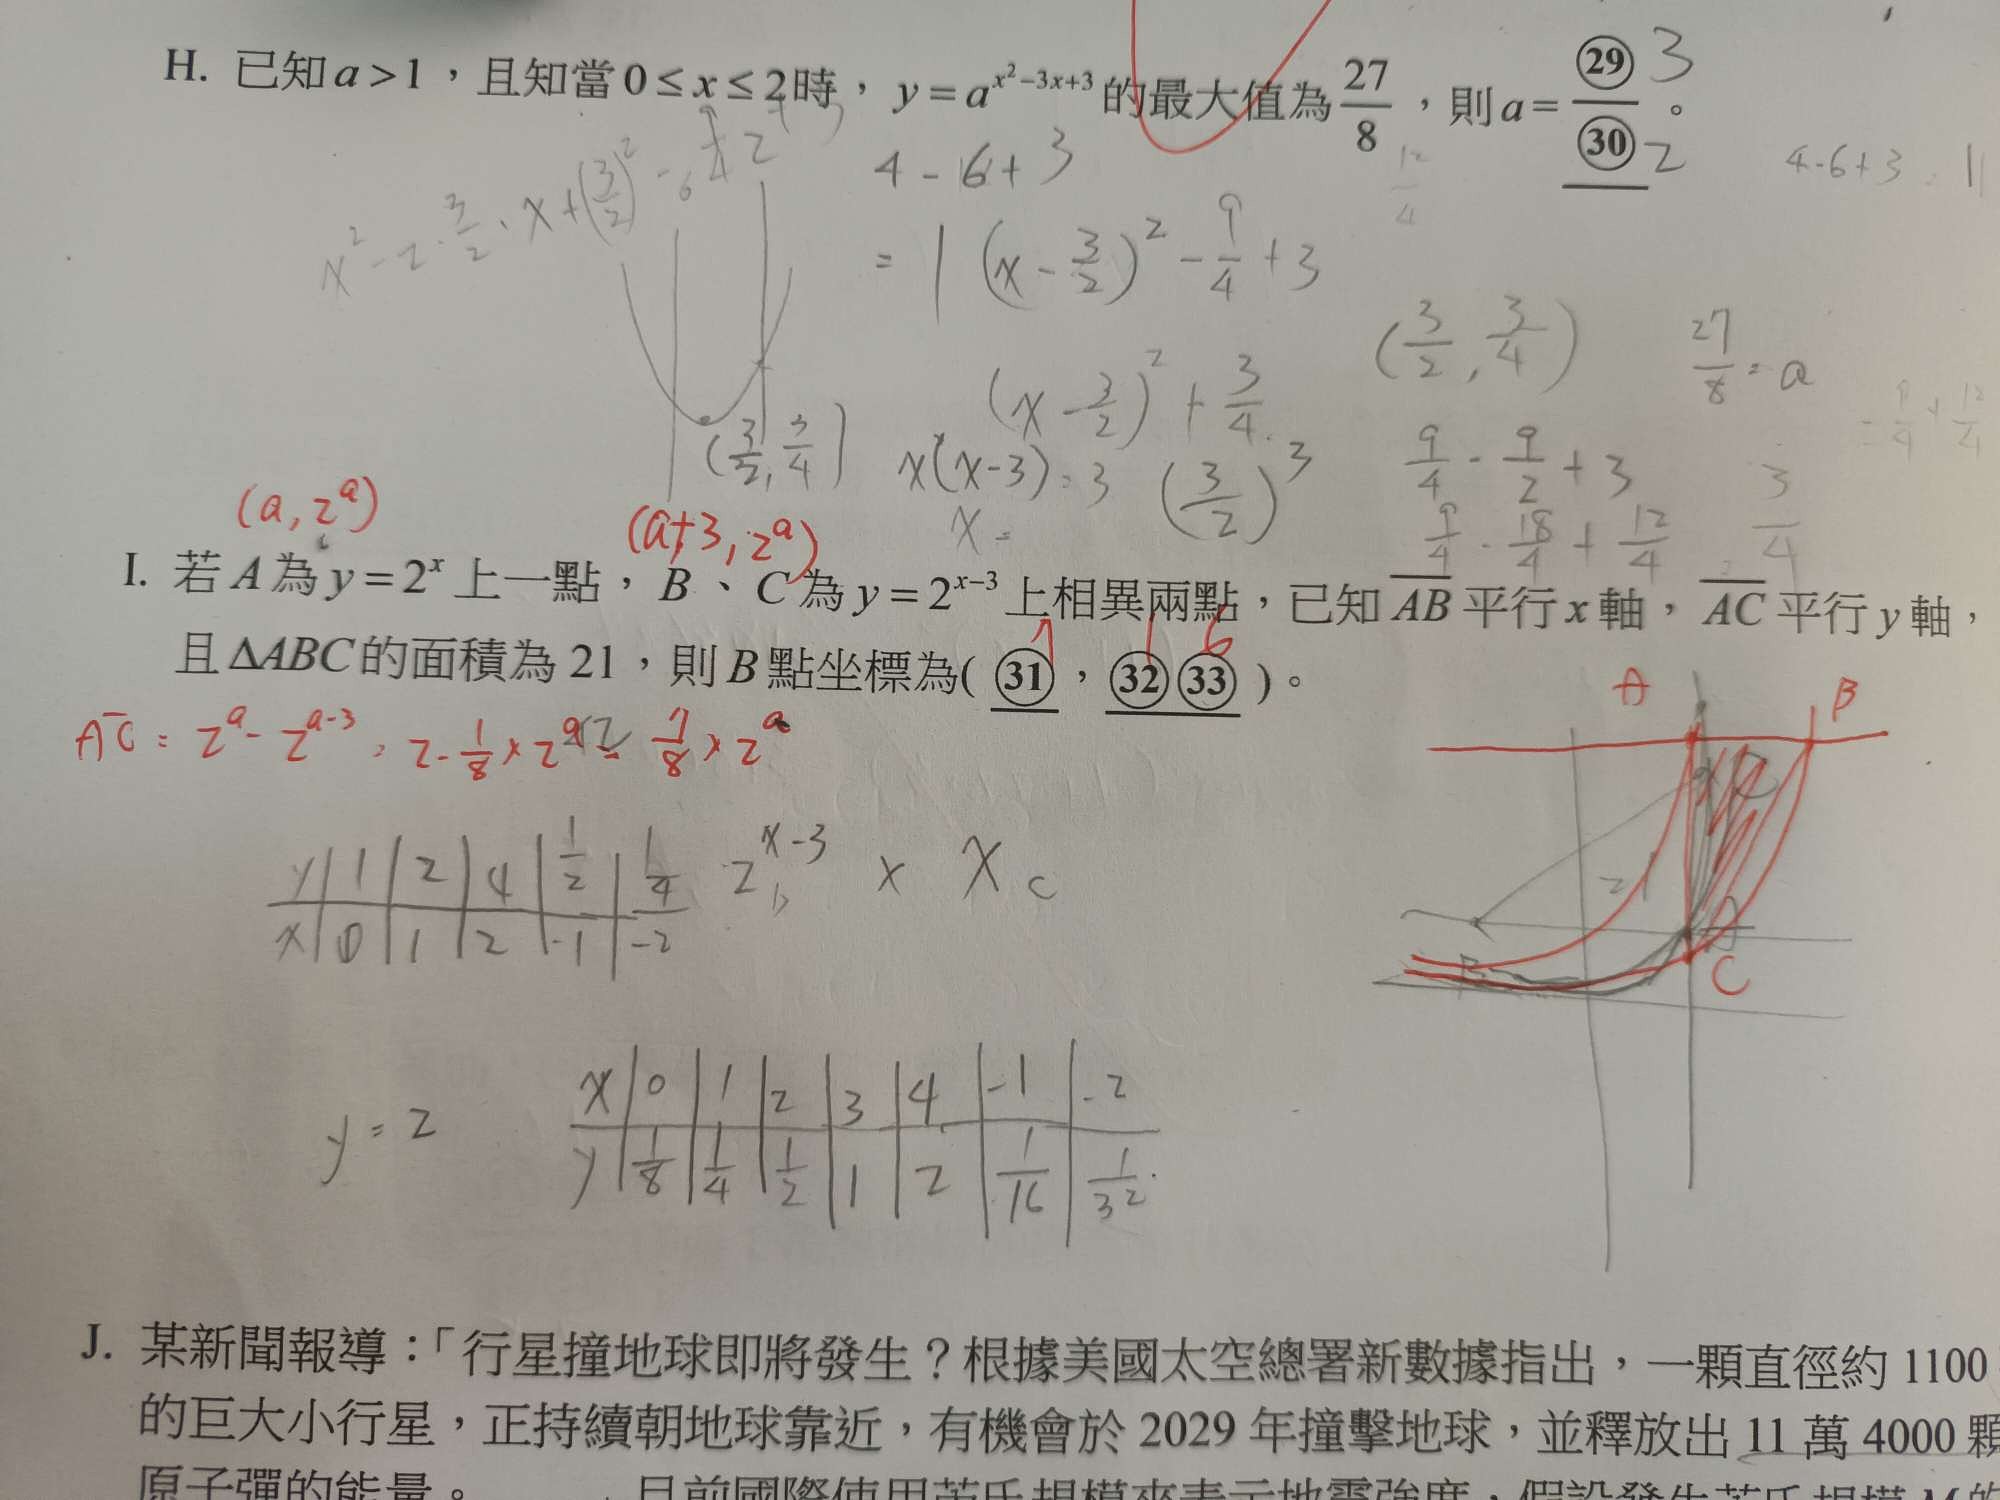 H. 已知a>1，且知當0≤x≤2時，y=a^{x²-3x+3}的最大值為27/8，則a=㉙/㉚。
3
2
4-6+3
4-6+3 = 1
12/4
x²-2·3/2·x+(3/2)²-
= 1
(x-3/2)²-9/4+3
(3/2, 3/4)
27/8=a
(x-3/2)²+3/4
(3/2, 3/4)
x(x-3)=3
(3/2)³
9/4-9/2+3
=9/4+12/4
x=
9/4-18/4+12/4
3/4
(a, 2^a)
(a+3, 2^a)
I. 若A為y=2^x上一點，B、C為y=2^{x-3}上相異兩點，已知AB平行x軸，AC平行y軸，
且ΔABC的面積為21，則B點坐標為(㉛，㉜㉝)。
7
1 6
AC = 2^a-2^{a-3} = 2-1/8×2^a = 7/8×2^a
A B
C
y 1 2 4 1/2 1/4
x 0 1 2 -1 -2
2^{x-3} × x
y=2
x 0 1 2 3 4 -1 -2
y 1/8 1/4 1/2 1 2 1/16 1/32
J. 某新聞報導：「行星撞地球即將發生？根據美國太空總署新數據指出，一顆直徑約1100
的巨大小行星，正持續朝地球靠近，有機會於2029年撞擊地球，並釋放出11萬4000顆
原子彈的能量。
目前國際使用芮氏規模來表示地震強度，假設發生芮氏規模M的